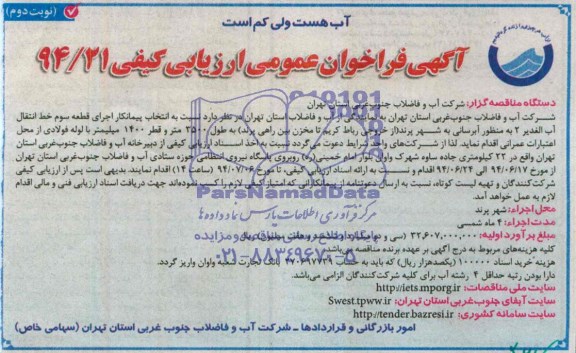 (نوبت دوم)
آب هست ولی کم است
آگهی فراخوان عمومی ارزیابی کیفی ۹۴/۲۱
دستگاه مناقصه گزار: شرکت آب و فاضلاب جنوب‌غربی استان تهران
شرکت آب و فاضلاب جنوب‌غربی استان تهران به نمایندگی از آب و فاضلاب استان تهران در نظر دارد نسبت به انتخاب پیمانکار اجرای قطعه سوم خط انتقال
آب الغدیر ۲ به منظور آبرسانی به شهر پرند(از خروجی رباط کریم تا مخزن بین راهی پرند) به طول ۳۵۰۰ متر و قطر ۱۴۰۰ میلیمتر با لوله فولادی از محل
اعتبارات عمرانی اقدام نماید. لذا از شرکت‌های واجد شرایط دعوت می گردد نسبت به اخذ اسناد ارزیابی کیفی از دبیرخانه آب و فاضلاب جنوب‌غربی استان
تهران واقع در ۲۲ کیلومتری جاده ساوه شهرک واوان بلوار امام خمینی(ره) روبروی پاسگاه نیروی انتظامی حوزه ستادی آب و فاضلاب جنوب‌غربی استان تهران
از مورخ ۹۴/۰۶/۱۷ الی ۹۴/۰۶/۲۴ اقدام و نسبت به ارائه اسناد ارزیابی کیفی، تا مورخ ۹۴/۰۷/۰۶ (ساعت ۱۴) اقدام نمایند. بدیهی است پس از ارزیابی کیفی
شرکت‌کنندگان و تهیه لیست کوتاه، نسبت به ارسال دعوتنامه از پیمانکارانی که امتیاز کیفی لازم را کسب نموده‌اند جهت دریافت اسناد ارزیابی فنی و مالی اقدام
لازم به عمل خواهد آمد.
محل اجراء: شهر پرند
مدت اجراء: ۴ ماه شمسی
مبلغ برآورد اولیه: ۳۲,۶۰۷,۰۰۰,۰۰۰ (سی و دو میلیارد و ششصد و هفت میلیون) ریال
کلیه هزینه‌های مربوط به درج آگهی بر عهده برنده مناقصه می‌باشد.
هزینه خرید اسناد ۱۰۰۰۰۰ (یکصدهزار ریال) که باید به حساب ۴۷۰۶۹۷۷۳۹ بانک تجارت شعبه واوان واریز گردد.
دارا بودن رتبه حداقل ۴ رشته آب برای کلیه شرکت‌کنندگان الزامی می‌باشد.
سایت ملی مناقصات: http://iets.mporg.ir
سایت آبفای جنوب‌غربی استان تهران: Swest.tpww.ir
سایت سامانه کشوری: http://tender.bazresi.ir
امور بازرگانی و قراردادها ـ شرکت آب و فاضلاب جنوب غربی استان تهران (سهامی خاص)
ParsNamadData
مرکز فرآوری اطلاعات پارس نماد داده‌ها
پایگاه اطلاع رسانی مناقصه و مزایده
۰۲۱-۸۸۳۴۹۶۷۰-۵